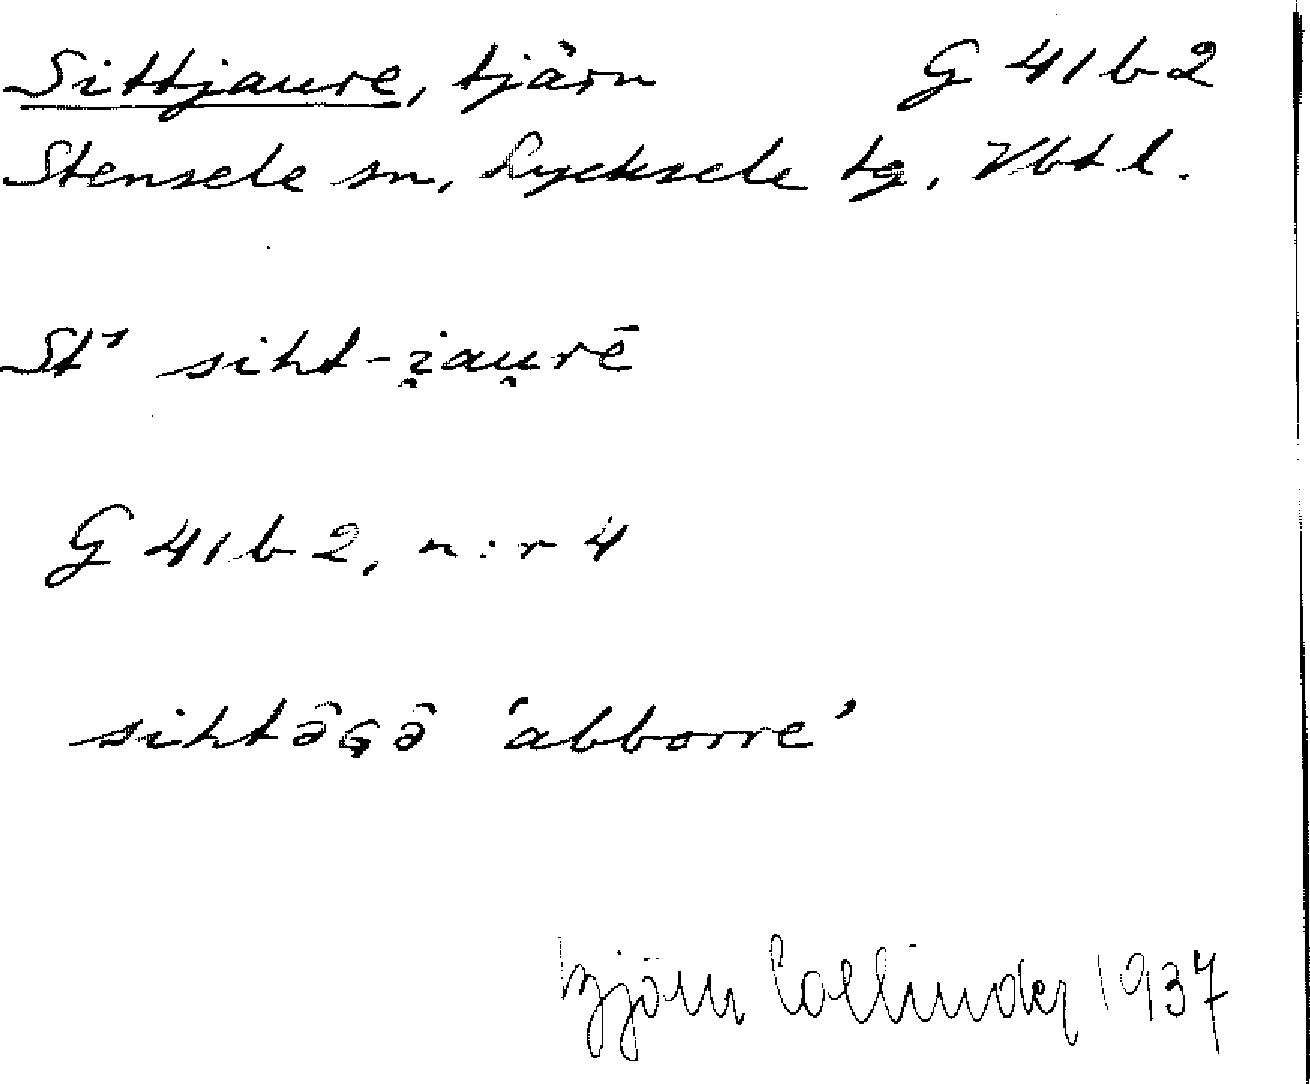 Sittjaure, tjärn G 41 b 2
Stensele sn, Lycksele tg, Vbtl.
St¹ siht-i̯au̯rē
G 41 b 2, n:r 4
sihtə̂Gə̂ 'abborre'
Björn Collinder 1937